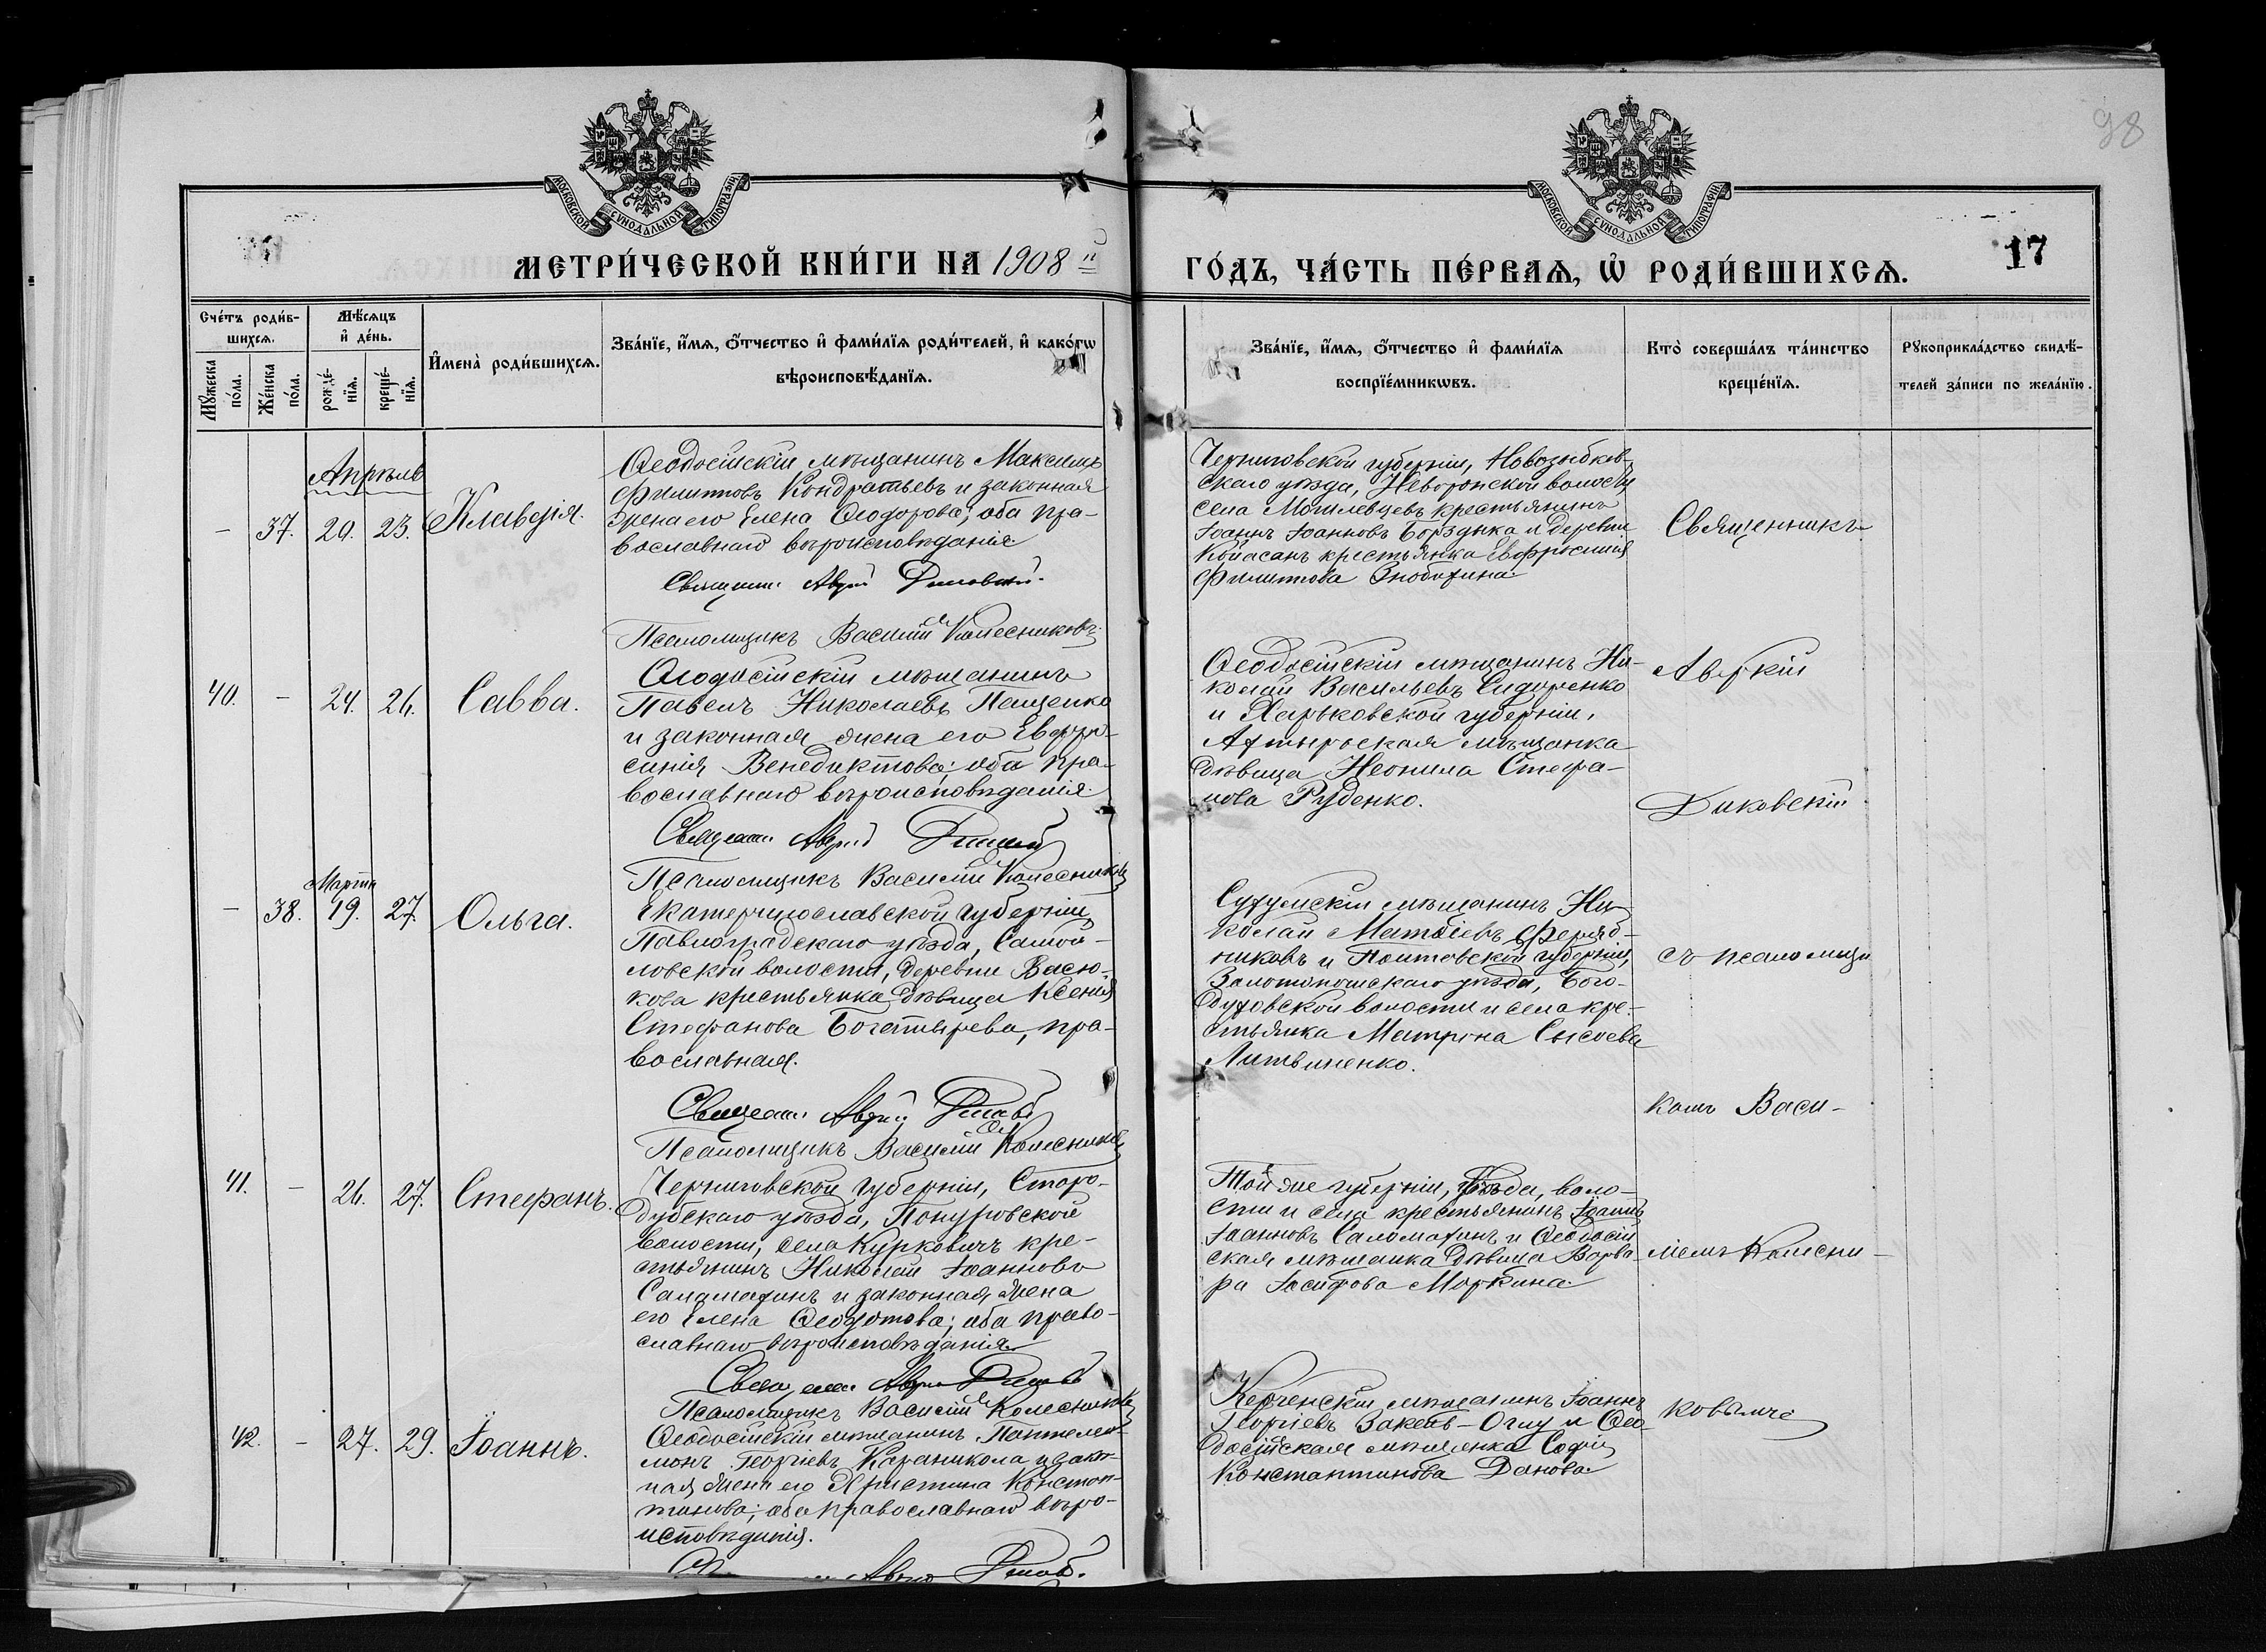 98
МОСКОВСКОЙ СѴНОДАЛЬНОЙ ТИПОГРАФІИ
МОСКОВСКОЙ СѴНОДАЛЬНОЙ ТИПОГРАФІИ
МЕТРИ́ЧЕСКОЙ КНИ́ГИ НА 1908 й
ГО́ДЪ, ЧА́СТЬ ПЕ́РВАѦ, Ѡ҆ РОДИ́ВШИХСѦ.
17
Сче́тъ роди́в-
шихсѧ.
Мꙋ́жеска по́ла.
Же́нска по́ла.
Мѣ́сѧцъ
и҆ де́нь.
рожде́-нїѧ.
креще́-нїѧ.
И҆мена̀ роди́вшихсѧ.
Зва́нїе, и҆́мѧ, ѻ҆́тчество и҆ фами́лїѧ роди́телей, и҆ како́гѡ
вѣроисповѣ́данїѧ.
Зва́нїе, и҆́мѧ, ѻ҆́тчество и҆ фами́лїѧ
воспрїе́мникѡвъ.
Кто̀ соверша́лъ та́инство
креще́нїѧ.
Рꙋкоприкла́дство свидѣ́-
телей за́писи по жела́нїю.
Апрѣль
– 37. 20. 23. Клавдія.
Ѳеодосійскій мѣщанинъ Максимъ
Филипповъ Кондратьевъ и законная
жена его Елена Ѳеодорова; оба пра-
вославнаго вѣроисповѣданія
Священн. Аверкій Диковскій.
Псаломщикъ Василій Колесниковъ
Черниговской губерніи, Новозыбков-
скаго уѣзда, волости
села крестьянинъ
Іоаннъ Іоанновъ Борздыка и деревни
крестьянка Евфросинія
Филиппова
Священникъ
40. – 24. 26. Савва.
Ѳеодосійскій мѣщанинъ
Павелъ Николаевъ Пащенко
и законная жена его Евфро-
синія Венедиктова; оба пра-
вославнаго вѣроисповѣданія.
Священн. Аверкій
Псаломщикъ Василій Колесниковъ
Ѳеодосійскій мѣщанинъ Ни-
колай Васильевъ Сидоренко
и Харьковской губерніи,
Ахтырская мѣщанка
дѣвица Неонила Стефа-
нова Руденко.
Аверкій
Диковскій
Марта
– 38. 19. 27. Ольга.
Екатеринославской губерніи,
Павлоградскаго уѣзда, Самой-
ловской волости, деревни Васю-
кова крестьянка дѣвица Ксенія
Стефанова Богатырева, пра-
вославная.
Священн. Аверкій
Псаломщикъ Василій Колесниковъ
мѣщанинъ Ни-
колай Матѳіевъ
никовъ и Полтавской губерніи,
Золотоношскаго уѣзда, Бого-
духовской волости и села кре-
стьянка Матрона Сысоева
Литвиненко.
съ псаломщи
комъ Васи-
41. – 26. 27. Стефанъ.
Черниговской губерніи, Старо-
дубскаго уѣзда, Понуровской
волости, села Курковичъ кре-
стьянинъ Николай Іоанновъ
Саламахинъ и законная жена
его Елена Ѳеодотова; оба право-
славнаго вѣроисповѣданія
Священн. Аверкій
Псаломщикъ Василій Колесниковъ
Той же губерніи, уѣзда, воло-
сти и села крестьянинъ Іоаннъ
Іоанновъ Саломахинъ и Ѳеодосій
ская мѣщанка дѣвица Варва-
ра Іосифова Моркина
ліемъ Колесни-
42. – 27. 29. Іоаннъ.
Ѳеодосійскій мѣщанинъ Пантелей-
монъ Георгіевъ Караникола и закон-
ная жена его Христина Констан-
тинова; оба православнаго вѣро-
исповѣданія.
Керченскій мѣщанинъ Іоаннъ
Георгіевъ Оглу и Ѳео-
досійская мѣщанка Софія
Константинова Данова
ковымъ